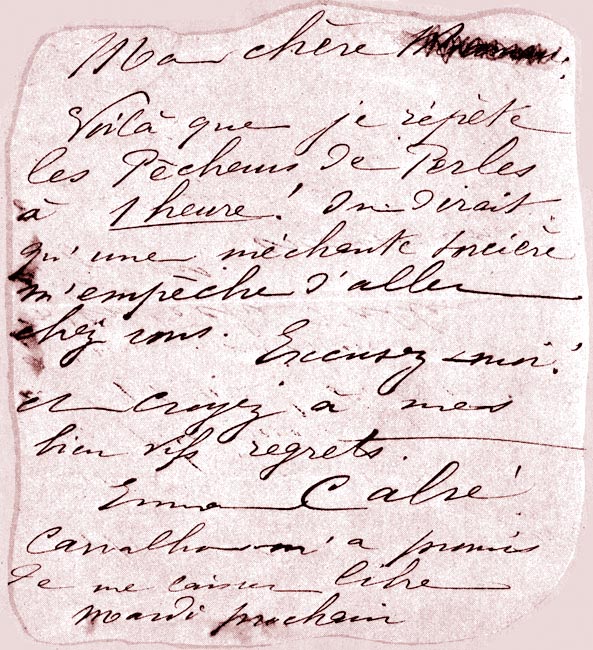 Ma chère
Voilà que je répète
les Pêcheurs de Perles
à 1 heure! On dirait
qu'une méchante sorcière
m'empêche d'aller
chez vous.
Excusez-moi!
et croyez à mes
bien vifs regrets.
Emma Calvé
Carvalho m'a promis
de me laisser libre
mardi prochain